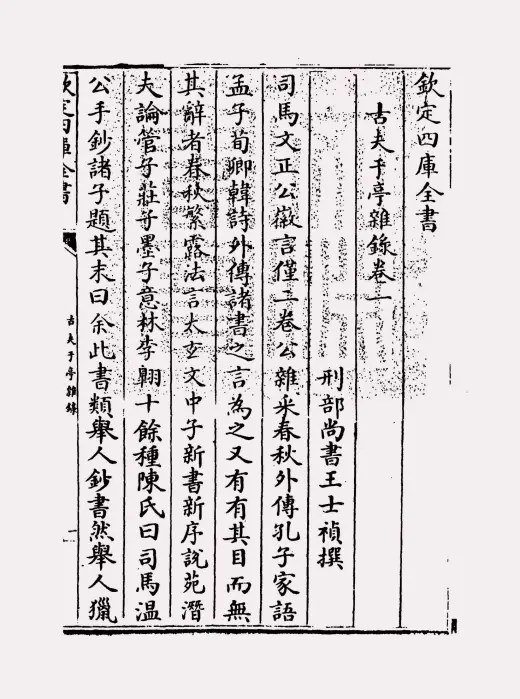 欽定四庫全書
古夫于亭雜錄卷一
刑部尚書王士禎撰
司馬文正公㣲言僅一卷公雜采春秋外傳孔子家語
孟子荀卿韓詩外傳諸書之言為之又有有其目而無
其辭者春秋繁露法言太玄文中子新書新序說苑潛
夫論管子莊子墨子意林李翺十餘種陳氏曰司馬溫
公手鈔諸子題其末曰余此書類舉人鈔書然舉人獵
欽定四庫全書
古夫于亭雜錄
一